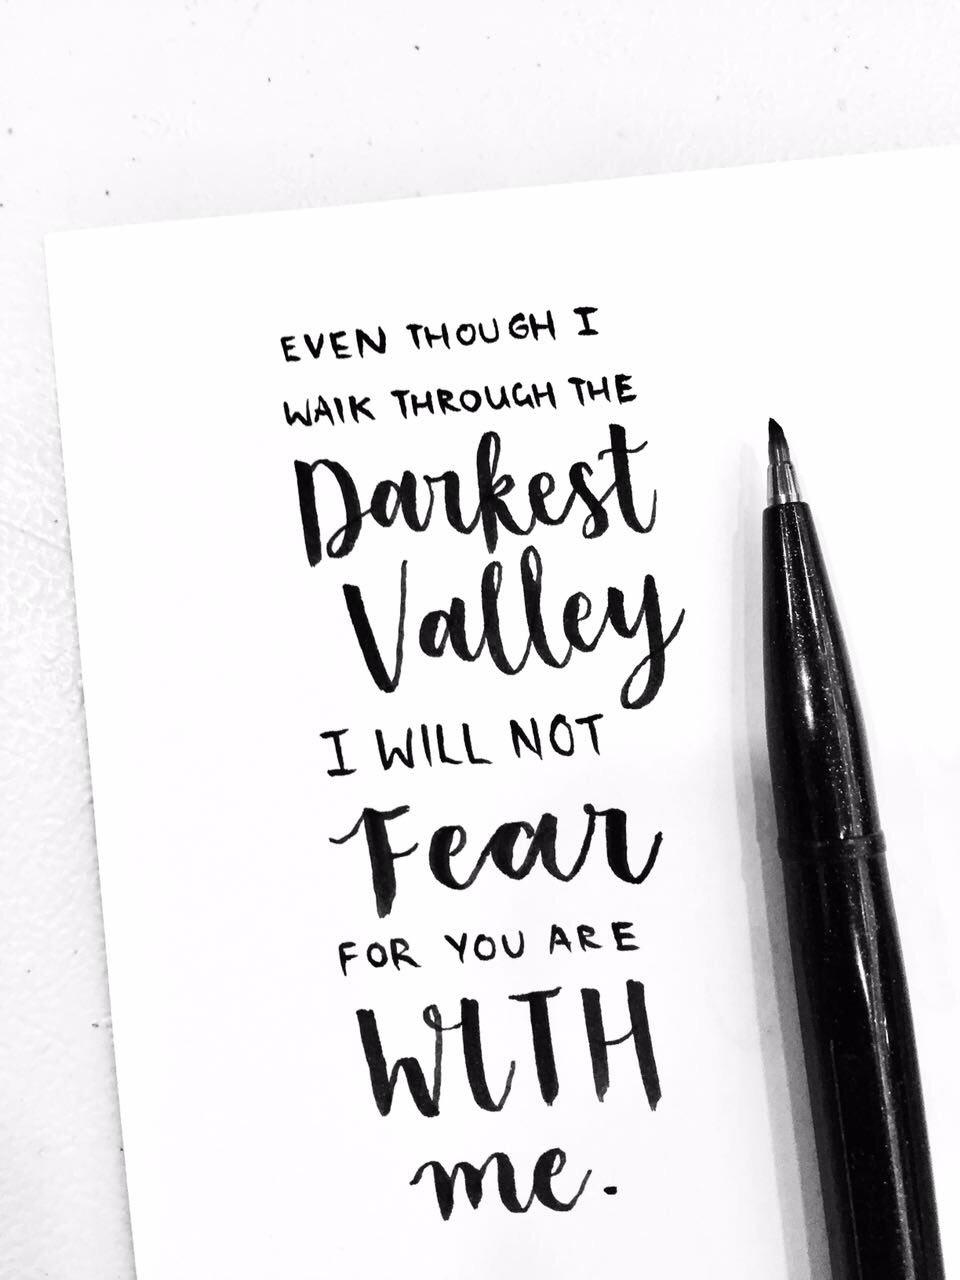 EVEN THOUGH I
WAlK THROUGH THE
Darkest
Valley
I WILL NOT
Fear
FOR YOU ARE
WITH
me.